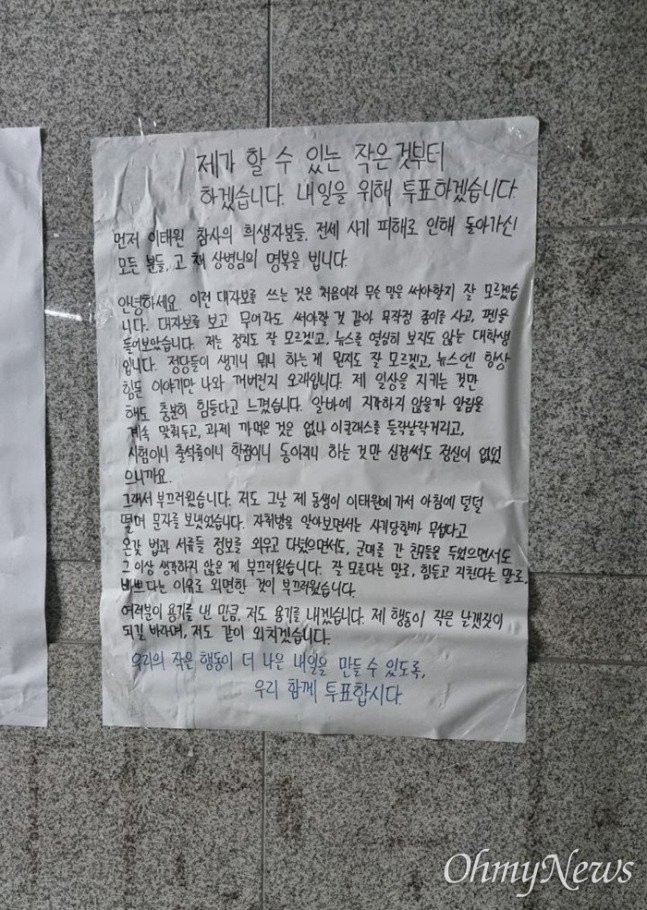 제가 할 수 있는 작은 것부터
하겠습니다. 내일을 위해 투표하겠습니다.
먼저 이태원 참사의 희생자분들, 전세 사기 피해로 인해 돌아가신
모든 분들, 고 채 상병님의 명복을 빕니다.
안녕하세요 이런 대자보를 쓰는 것은 처음이라 무슨 말을 써야할지 잘 모르겠습
니다. 대자보를 보고 무어라도 써야할 것 같아 무작정 종이를 사고, 펜을
들어보았습니다. 저는 정치도 잘 모르겠고, 뉴스를 열심히 보지도 않는 대학생
입니다. 정당들이 생기니 뭐니 하는게 뭔지도 잘 모르겠고, 뉴스엔 항상
힘든 이야기만 나와 꺼버린지 오래입니다. 제 일상을 지키는 것만
해도 충분히 힘들다고 느꼈습니다. 알바에 지각하지 않을까 알람을
계속 맞춰두고, 과제 까먹은 것은 없나 이클래스를 들락날락거리고,
시험이니 출석률이니 학점이니 동아리니 하는 것만 신경써도 정신이 없었
으니까요.
그래서 부끄러웠습니다. 저도 그날 제 동생이 이태원에 가서 아침에 덜덜
떨며 문자를 보냈었습니다. 자취방을 알아보면서는 사기당할까 무섭다고
온갖 법과 서류들 정보를 외우고 다녔으면서도, 군대를 간 친구들은 두었으면서도
그 이상 생각하지 않은 제 부끄러웠습니다. 잘 모른다는 말로, 힘들고 지친다는 말로,
바쁘다는 이유로 외면한 것이 부끄러웠습니다.
여러분이 용기를 낸 만큼, 저도 용기를 내겠습니다. 제 행동이 작은 날갯짓이
되길 바라며, 저도 같이 외치겠습니다.
우리의 작은 행동이 더 나은 내일을 만들 수 있도록,
우리 함께 투표합시다.
OhmyNews